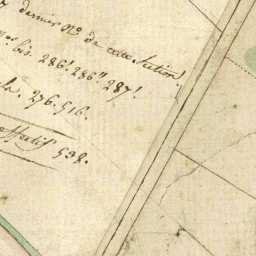 dernier N.º de cette Section
bis 286. 286" 287!
276. 516.
effectif 592.